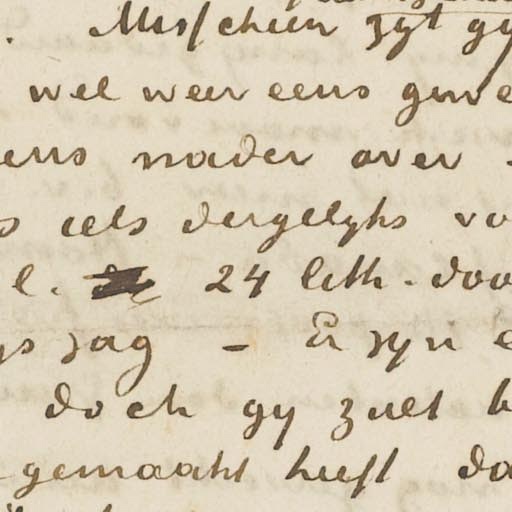 . Misschien zyt gy
wel weer eens gew
ens nader over
s iets dergelyks vo
l. 24 lith. doo
ys zag - Er zyn e
doch gy zult b
gemaakt heeft da